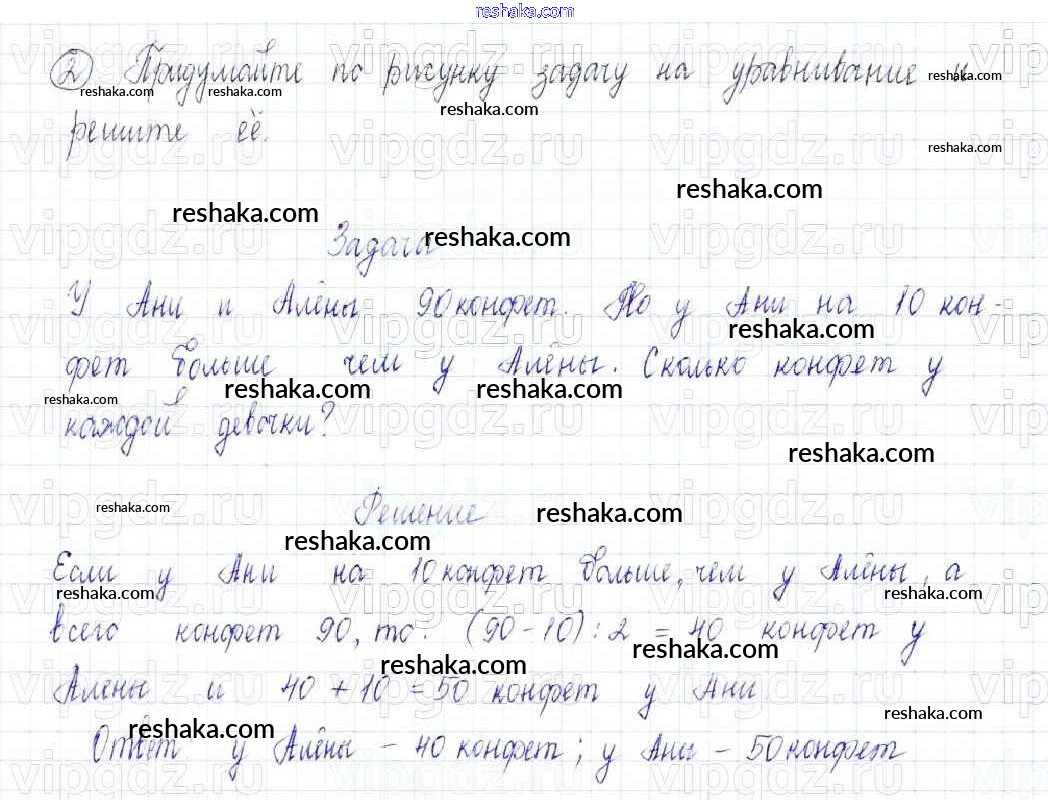 reshaka.com
② Придумайте по рисунку задачу на уравнивание и
reshaka.com reshaka.com reshaka.com reshaka.com
решите её.
reshaka.com
vipgdz.ru vipgdz.ru vipgdz.ru
reshaka.com
reshaka.com
Задача
reshaka.com
У Ани и Алёны 90 конфет. Но у Ани на 10 кон-
reshaka.com
фет больше чем у Алёны. Сколько конфет у
reshaka.com reshaka.com reshaka.com
каждой девочки?
reshaka.com
Решение
reshaka.com reshaka.com
reshaka.com
Если у Ани на 10 конфет больше, чем у Алёны, а
reshaka.com reshaka.com
всего конфет 90, то: (90-10):2 = 40 конфет у
reshaka.com reshaka.com
Алены и 40 + 10 = 50 конфет у Ани.
reshaka.com reshaka.com
Ответ у Алёны - 40 конфет; у Ани - 50 конфет